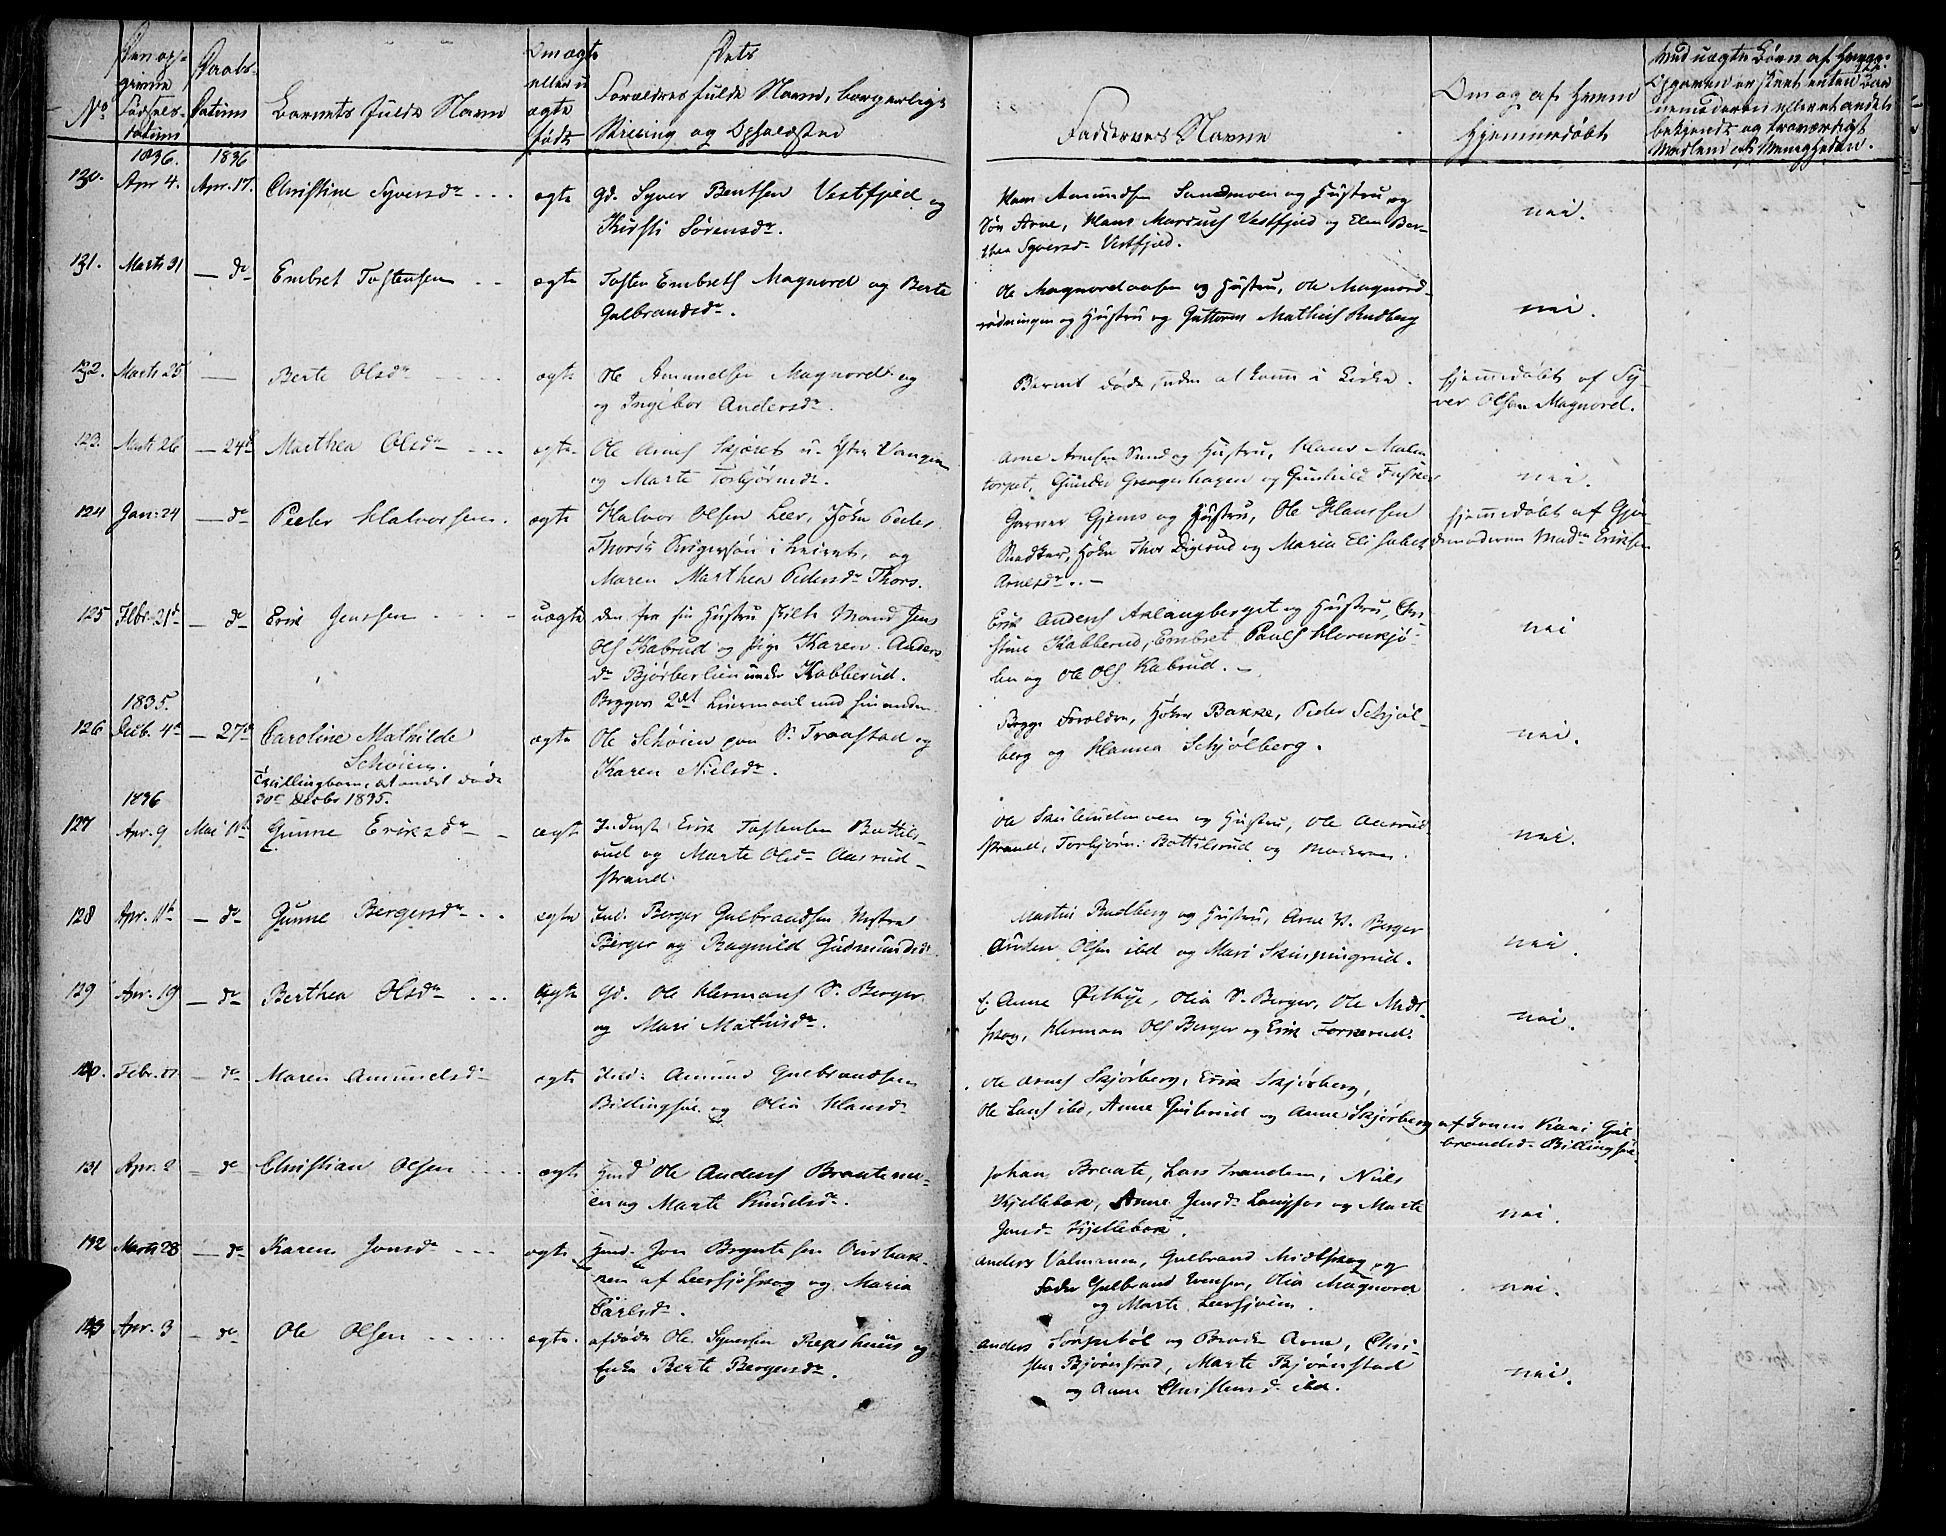 No
Den opgivne Fødsels-datum
Daabs-Datum
Barnets fulde Navn
Om ægte eller uægte født
Dets Forældres fulde Navn, borgerlige Stilling og Opholdssted
Faddernes Navne
Om og af hvem hjemmedøbt
1836. 1836
130. Apr 4. Apr. 17. Christine Syversdr ægte Gd. Syver Bentsen Vestfjeld og
Kirsti Sørensdr.
Hans Amundsen Sandmoen og Hustru og
Søn Arne, Hans Marcus Vestfjeld og Elen Ber-
thea Syversd. Vestfjeld.
nei.
131. Marts 31 — do Embret Tostensen ægte Tosten Embrets Magnord og Berte
Gulbrandsdr.
Ole Magnordaasen og Hustru, Ole Magnord-
rødningen og Hustru og Guttorm Mathis Rudberg
nei.
132. Marts 25 — Berte Olsdr ægte Ole Amundsen Magnord og
og Ingebor Andersdr.
Barnet døde, uden at komme i Kirke.
hjemmedøbt af Sy-
ver Olsen Magnord.
123. Marts 26 — 24d Marthea Olsdr ægte Ole Arnes Skjøret u. Østre Vangen
og Marte Torbjørnsdr.
Arne Arnesen Sund og Hustru, Hans Malm-
torpet,
og Gunhild
nei.
124 Jan: 24 — do Peder Halvorsen. ægte Halvor Olsen Leer,
i Leiret, og
Maren Marthea Pedersdr Thors.
Garver Gjems og Hustru, Ole Hanssen
Thor Digerud og Maria Elisabet
Arnesdr. —
hjemmedøbt af Gjor-
demoderen Madm Eriksen
125 Febr. 21d — do Erik Jenssen uægte den fra sin Hustru skilte Mand Jens
Ols Kabrud og Pige Karen Anders
dr Bjørberlien under Kabberud.
Begges 2det Leiermaal med hinanden
Erik Anders Aslangberget og Hustru, Chri-
stine Kabberud, Embret Pauls Hornkjø-
len og Ole Ols Kabrud. —
nei
1835.
126 Decb. 4d — 27d Caroline Mathilde
Schøien.
Tvillingbarn, et andet døde
30te Decbr 1835.
ægte Ole Schøien paa S. Traastad og
Karen Nielsdr.
Begge Forældre, Bakke, Peder Schjøl-
berg og Hanna Schjølberg.
nei.
1836
127 Apr. 9 Mai 1ste Gunne Eriksdr ægte Inderst Erik Tostensen Bottils-
rud og Marte Olsdr Aasrud-
strand.
Ole og Hustru, Ole Aasrud-
strand, Torbjørn Bottilsrud og Moderen.
nei.
128 Apr. 11te — do Gunne Bergersdr ægte Ind. Berger Gulbrandsen Vestre
Berger og Ragnild Gudmundsdr
Martin Rudberg og Hustru, Arne V. Berger
Anders Olsen ibd og Mari Skinpungrud.
nei.
129 Apr. 19 — do Berthea Olsdr ægte Gd. Ole Hermans S. Berger
og Mari Mathisdr.
E. Anne Østbye, Olia S. Berger, Ole Midt-
skog, Herman Ols Berger og Erik Torkerud.
nei.
130. Febr. 27 — do Maren Amundsdr ægte Ind: Amund Gulbrandsen
Billingsøe og Olia Hansdr
Ole Arnes Skjørberg, Erik Skjørberg,
Ole Lars ibd, Anne Gulsrud og Anne Skjørberg
af Konen Kari Gul-
brandsd. Billingsøe.
131 Apr. 2 — do Christian Olsen ægte Huusd Ole Anders Braatemo-
en og Marte Knudsdr.
Johan Braate, Lars Tranden, Niels
Kjellebak, Anne Jensdr Langfos og Marte
Jonsdr Kjellebak.
nei.
132 Marts 28 — do Karen Jonsdr ægte Huusd. Jon Bryntesen Ourbak-
ken af Leersjøskog og Maria
Carlsdr.
Anders Valmann, Gulbrand Midtskog og
Fader Gulbrand Evensen, Olia Magnord
og Marte Leersjøen.
nei.
133 Apr. 3 — do Ole Olsen ægte. afdøde Ole Syversen Repshuus og
Enke Berte Bergersdr.
Anders Sørpebøl og Broder Arne, Chri-
sten Bjørnstad, Marte Bjørnstad
og Anne Christensdr ibd.
nei.